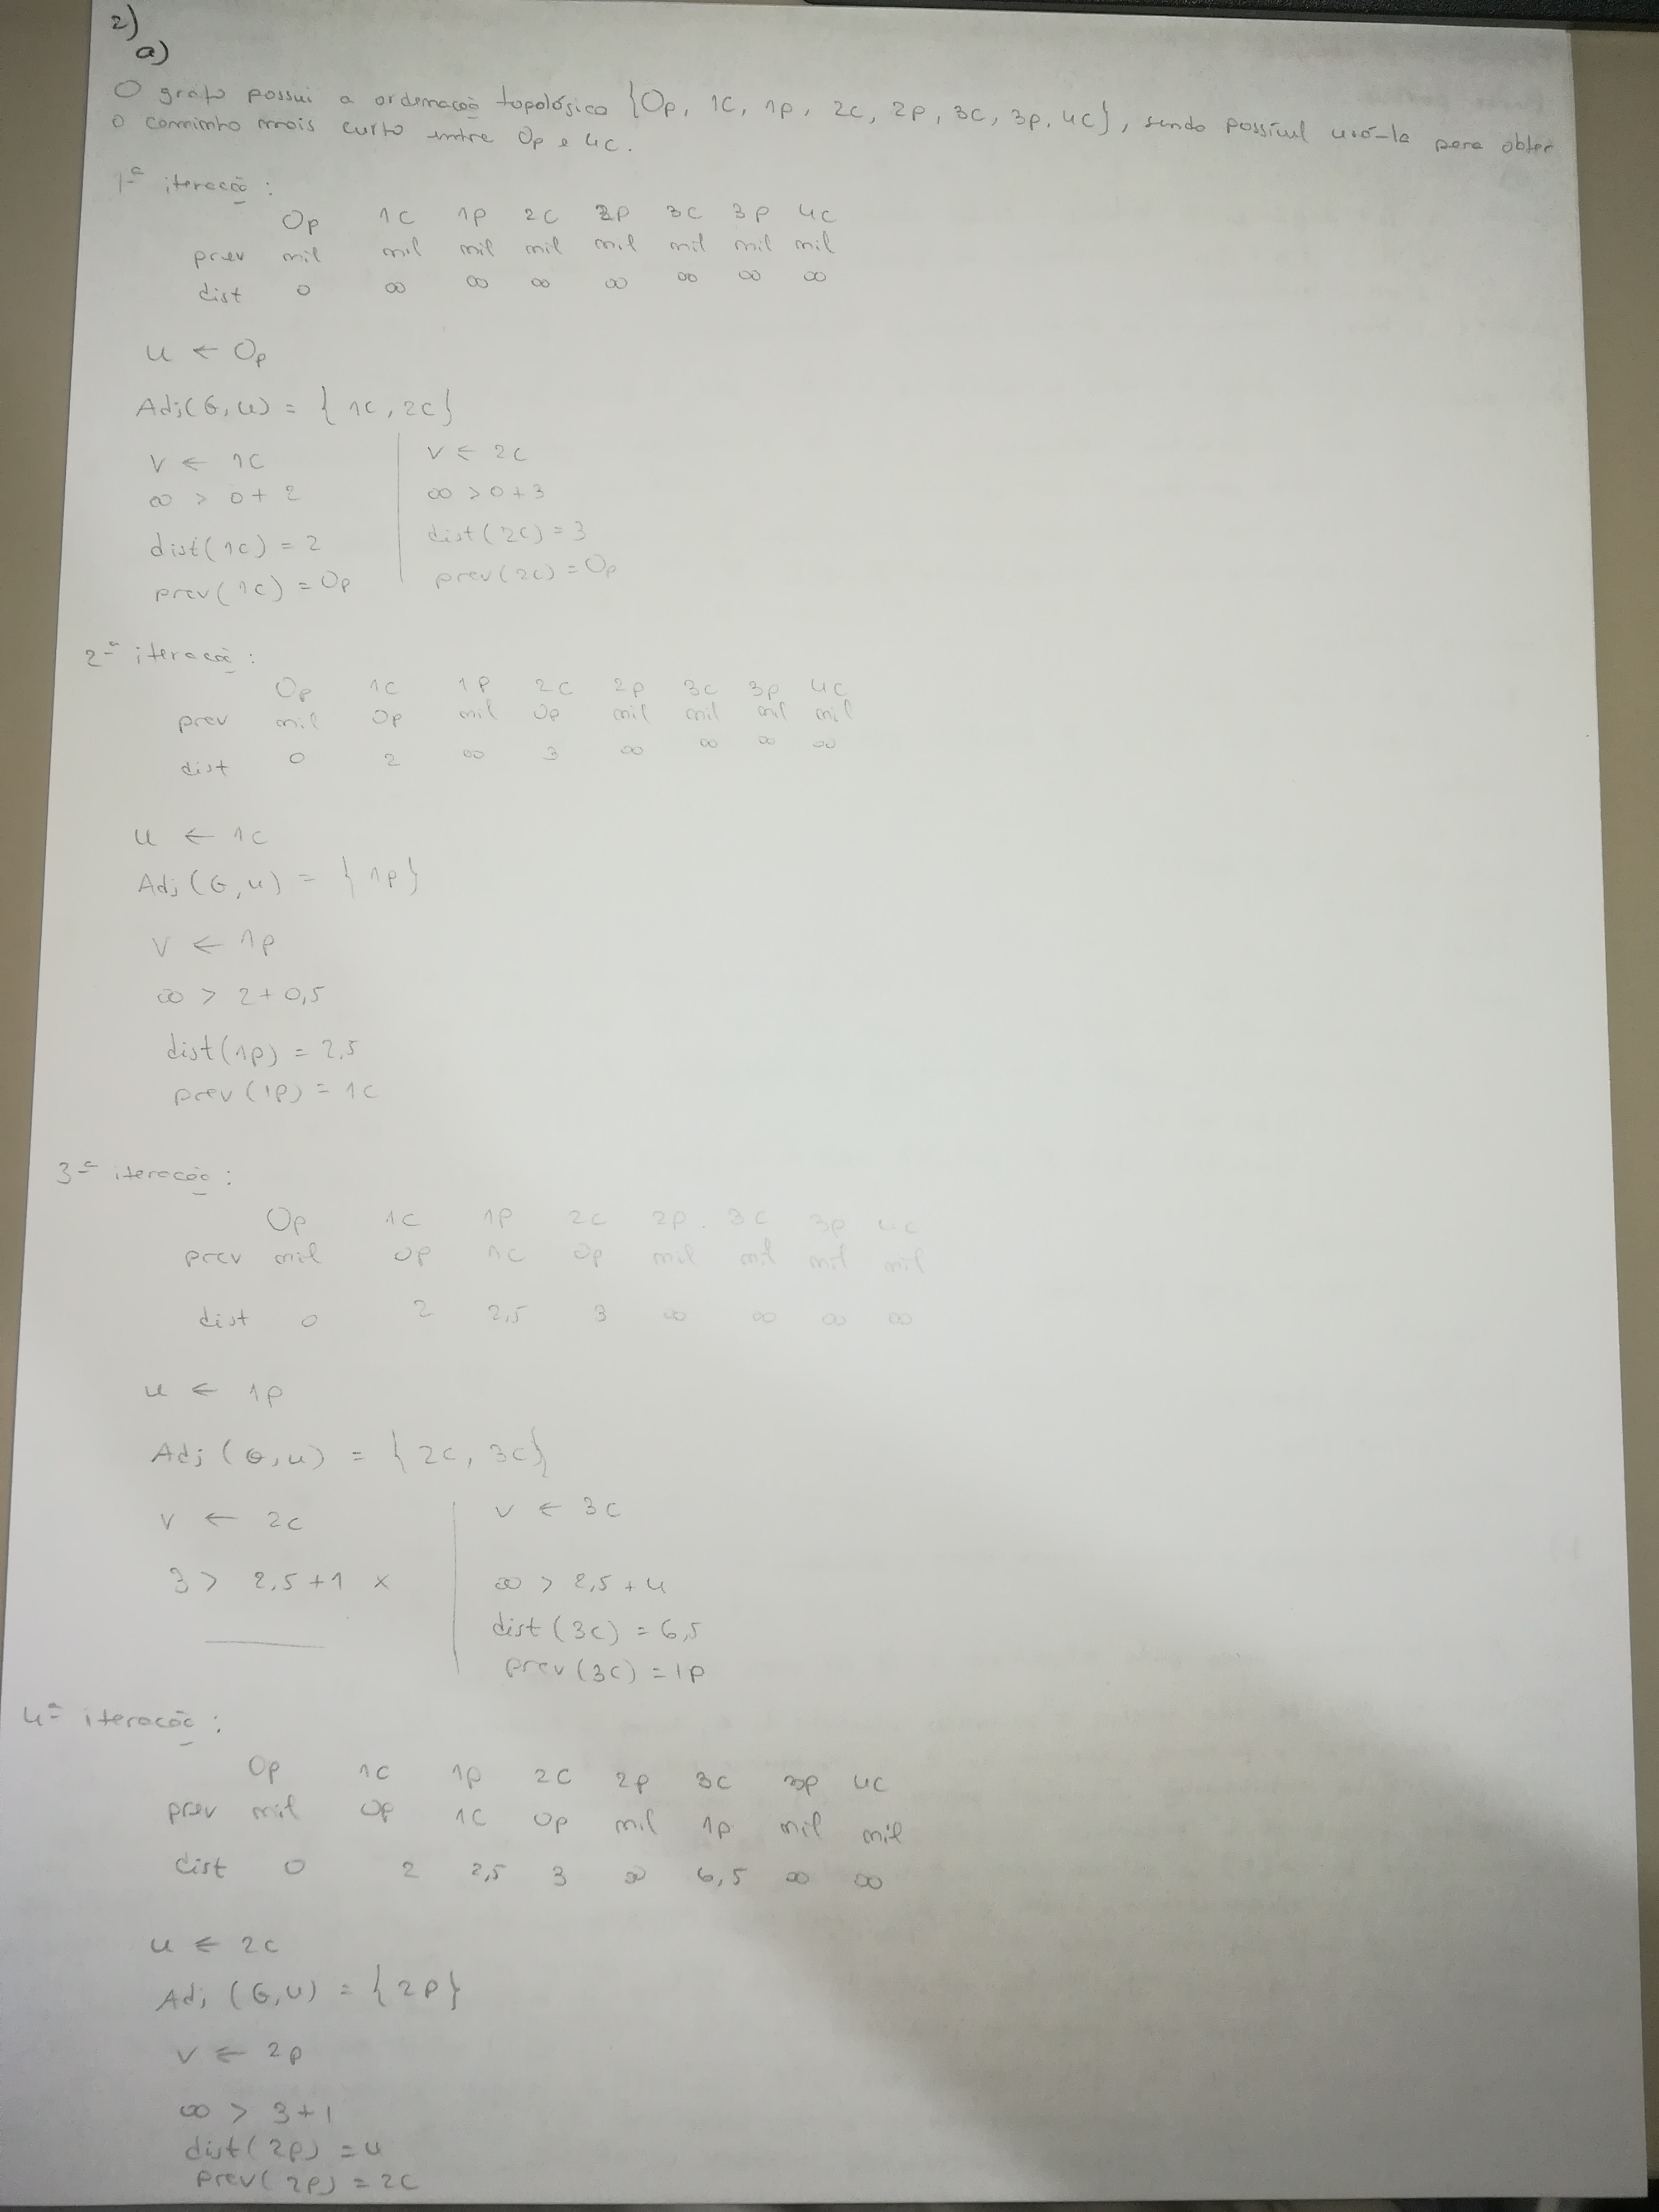 2)
a)
O grafo possui a ordenação topológica {Op, 1C, 1p, 2C, 2p, 3C, 3p, 4C}, sendo possível usá-la para obter
o caminho mais curto entre Op e 4C.
1ª iteração:
Op 1C 1P 2C 2P 3C 3P 4C
prev nil nil nil nil nil nil nil nil
dist 0 ∞ ∞ ∞ ∞ ∞ ∞ ∞
u ← Op
Adj(G,u) = {1C, 2C}
v ← 1C
∞ > 0+2
dist(1C) = 2
prev(1C) = Op
v ← 2C
∞ > 0+3
dist(2C) = 3
prev(2C) = Op
2ª iteração:
Op 1C 1P 2C 2p 3C 3p 4C
prev nil Op nil Op nil nil nil nil
dist 0 2 ∞ 3 ∞ ∞ ∞ ∞
u ← 1C
Adj(G,u) = {1p}
v ← 1p
∞ > 2+0,5
dist(1p) = 2,5
prev(1P) = 1C
3ª iteração:
Op 1C 1P 2C 2p 3C 3p 4C
prev nil Op 1C Op nil nil nil nil
dist 0 2 2,5 3 ∞ ∞ ∞ ∞
u ← 1p
Adj(G,u) = {2C, 3C}
v ← 2C
3 > 2,5+1 x
v ← 3C
∞ > 2,5+4
dist(3C) = 6,5
prev(3C) = 1P
4ª iteração:
Op 1C 1p 2C 2p 3C 3p 4C
prev nil Op 1C Op nil 1p nil nil
dist 0 2 2,5 3 ∞ 6,5 ∞ ∞
u ← 2C
Adj(G,u) = {2P}
v ← 2p
∞ > 3+1
dist(2p) = 4
prev(2p) = 2C